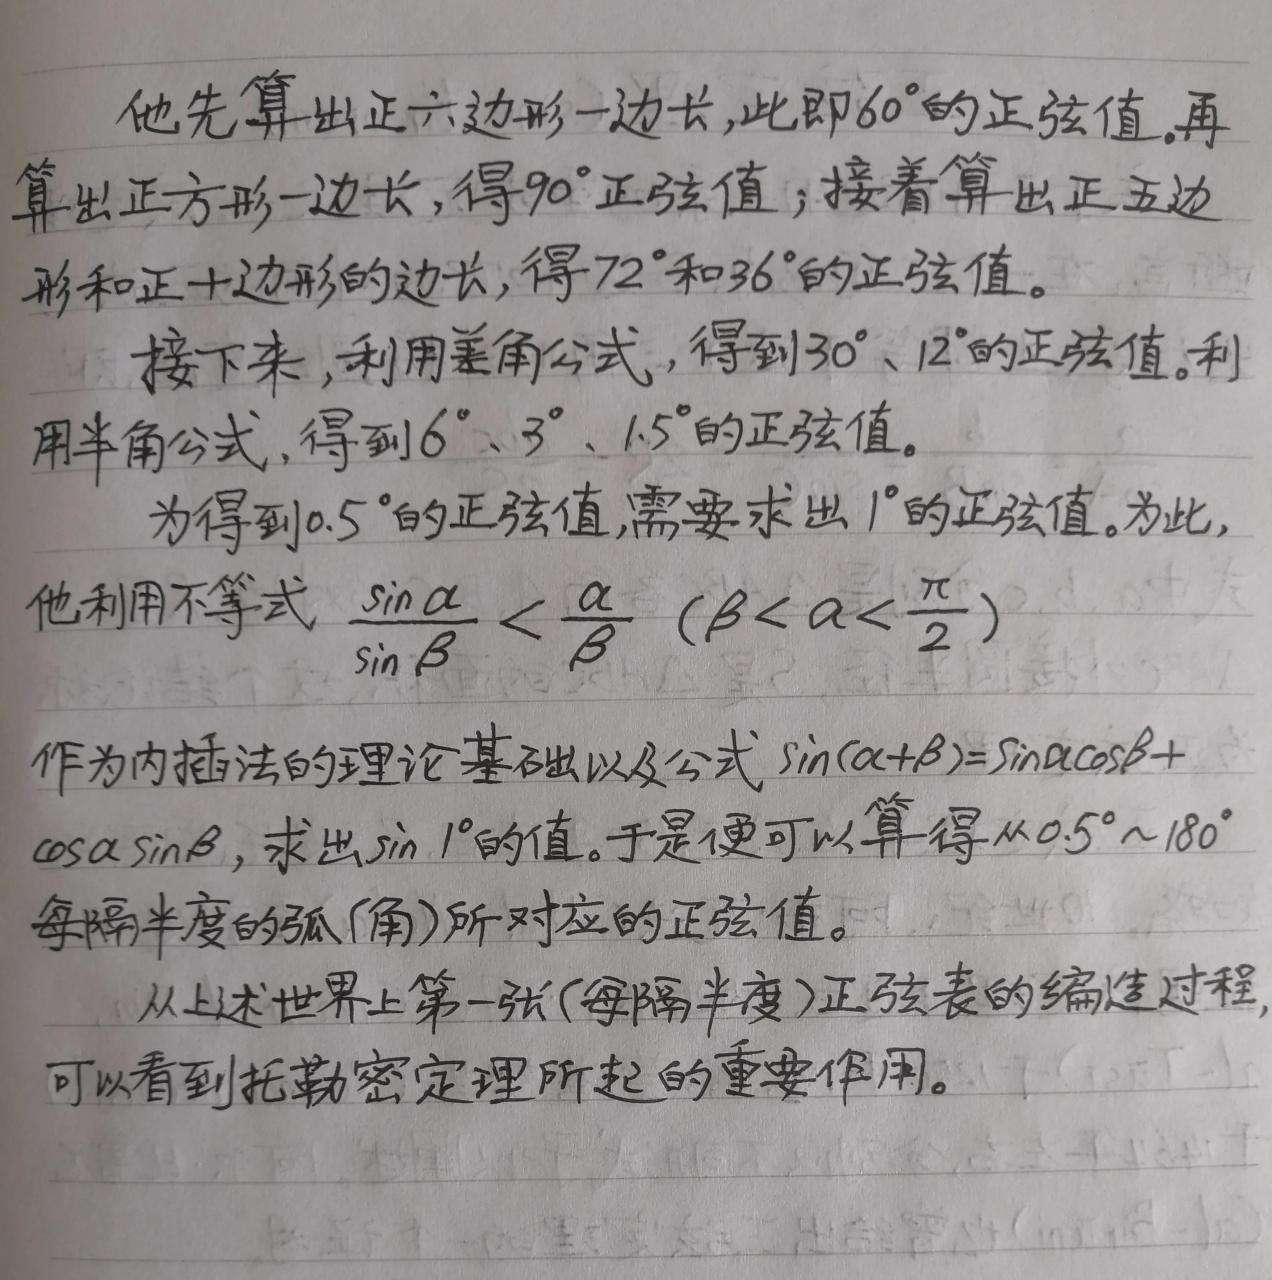 他先算出正六边形一边长,此即60°的正弦值。再
算出正方形一边长,得90°正弦值;接着算出正五边
形和正十边形的边长,得72°和36°的正弦值。
接下来,利用差角公式,得到30°、12°的正弦值。利
用半角公式,得到6°、3°、1.5°的正弦值。
为得到0.5°的正弦值,需要求出1°的正弦值。为此,
他利用不等式 sinα/sinβ < α/β (β<α<π/2)
作为内插法的理论基础以及公式 sin(α+β)=sinαcosβ+
cosαsinβ,求出sin 1°的值。于是便可以算得从0.5°~180°
每隔半度的弧(角)所对应的正弦值。
从上述世界上第一张(每隔半度)正弦表的编造过程,
可以看到托勒密定理所起的重要作用。